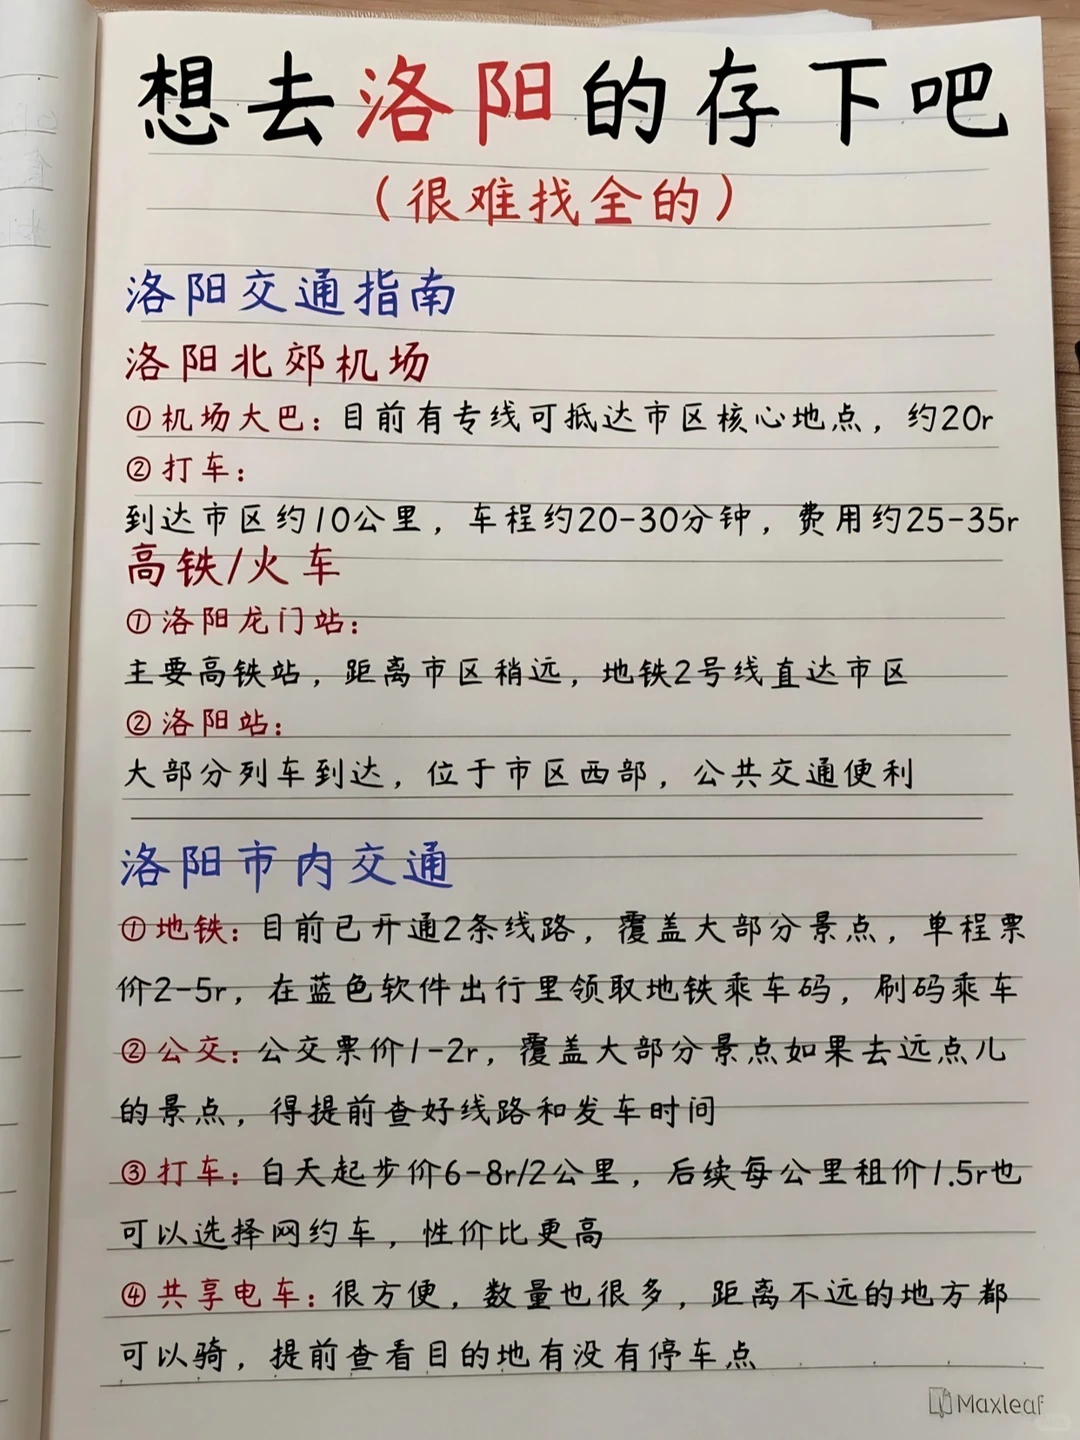 想去洛阳的存下吧
（很难找全的）
洛阳交通指南
洛阳北郊机场
①机场大巴：目前有专线可抵达市区核心地点，约20r
②打车：
到达市区约10公里，车程约20-30分钟，费用约25-35r
高铁/火车
①洛阳龙门站：
主要高铁站，距离市区稍远，地铁2号线直达市区
②洛阳站：
大部分列车到达，位于市区西部，公共交通便利
洛阳市内交通
①地铁：目前已开通2条线路，覆盖大部分景点，单程票
价2-5r，在蓝色软件出行里领取地铁乘车码，刷码乘车
②公交：公交票价1-2r，覆盖大部分景点如果去远点儿
的景点，得提前查好线路和发车时间
③打车：白天起步价6-8r/2公里，后续每公里租价1.5r也
可以选择网约车，性价比更高
④共享电车：很方便，数量也很多，距离不远的地方都
可以骑，提前查看目的地有没有停车点
Maxleaf